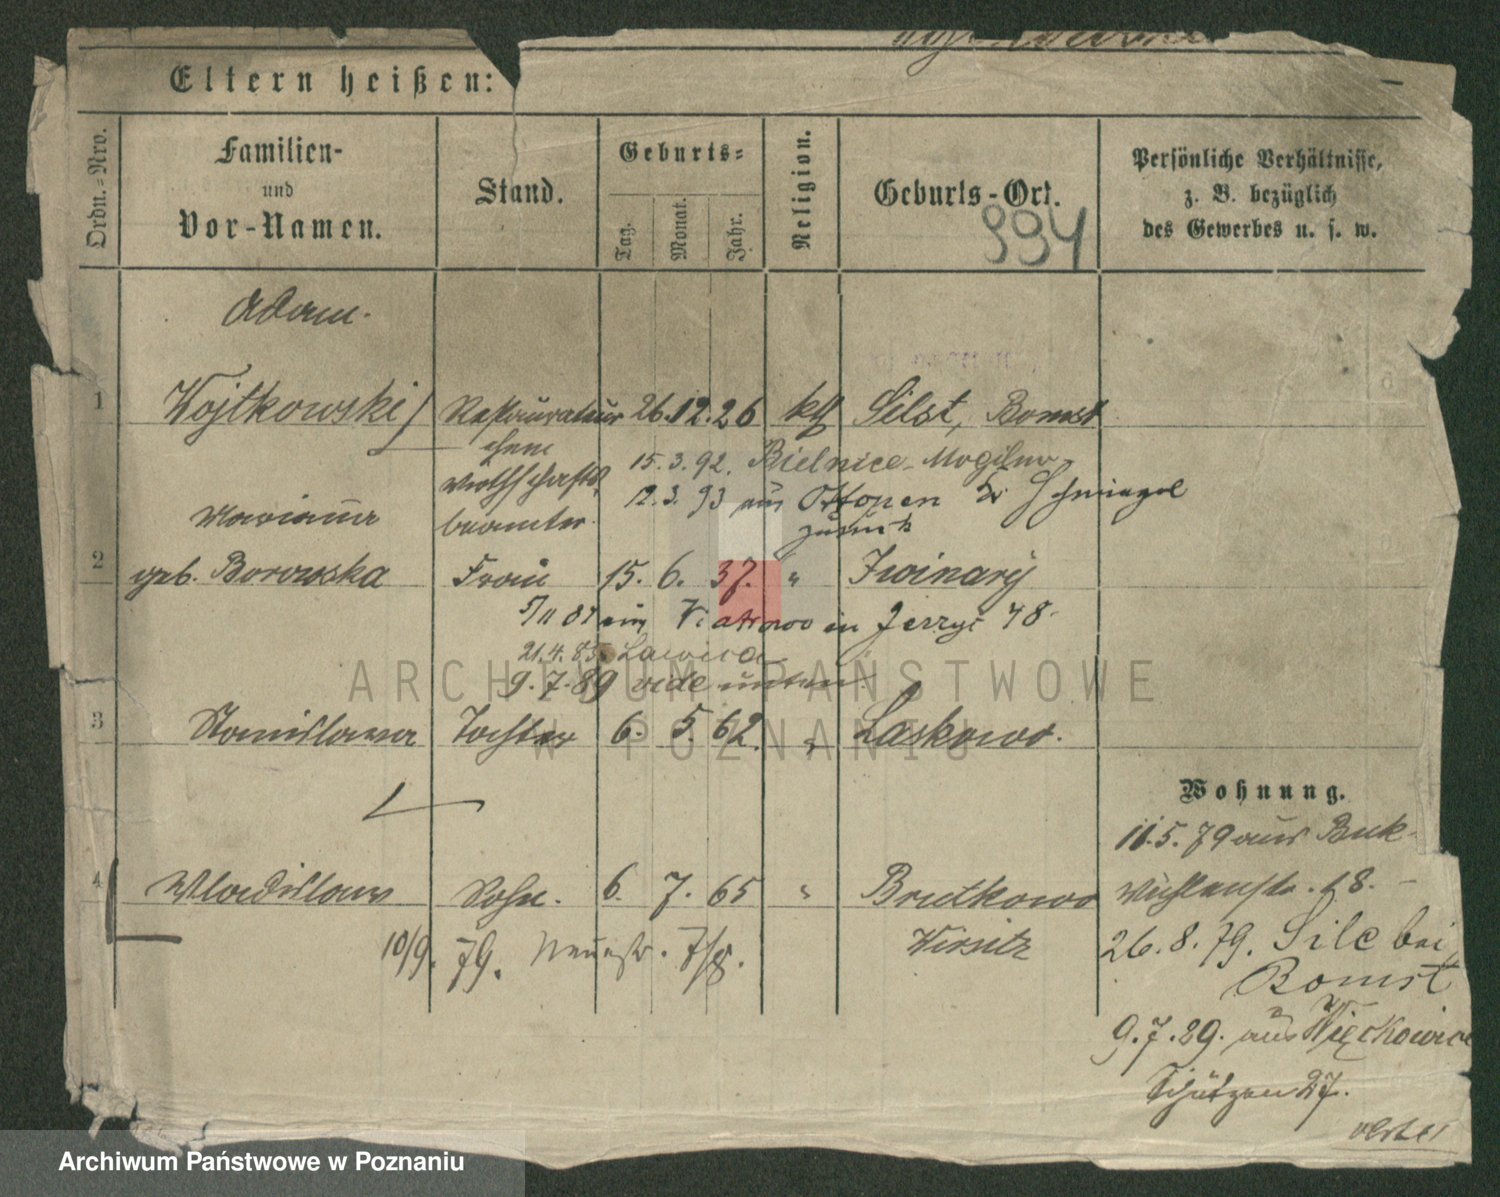 Eltern heißen:
Ordn.-Nro.
Familien-
und
Vor-Namen.
Stand.
Geburts-
Tag.
Monat.
Jahr.
Religion.
Geburts-Ort.
994
Persönliche Verhältnisse,
z. B. bezüglich
des Gewerbes u. s. w.
Adam.
1 Wojtkowski Restaurateur 26.12.26 kth Silst, Bomst
15.3.92. Bielnice-Mogilno
beamter.
12.3.93 aus Ottonen Kr Schmiegel
zurück
Marianna
2 geb. Borowska Frau 15. 6. 37. " Zwinary
5/11 81 in Jerzyc 48.
21.4.85. Lawica
9.7.89 vide unten.
3 Stanislawa Tochter 6. 5. 62. " Laskowo.
Wohnung.
11.5.79 aus Buk
4 Wladislaus Sohn. 6. 7. 65 " Brudkowo
Wirsitz
Mühlenstr. 18.
10/9. 79. Neuestr. 7/8.
26.8.79. Silc bei
Bomst
9.7.89. aus Więckowice
Schützen 27.
Archiwum Państwowe w Poznaniu
ARCHIWUM PAŃSTWOWE
W POZNANIU